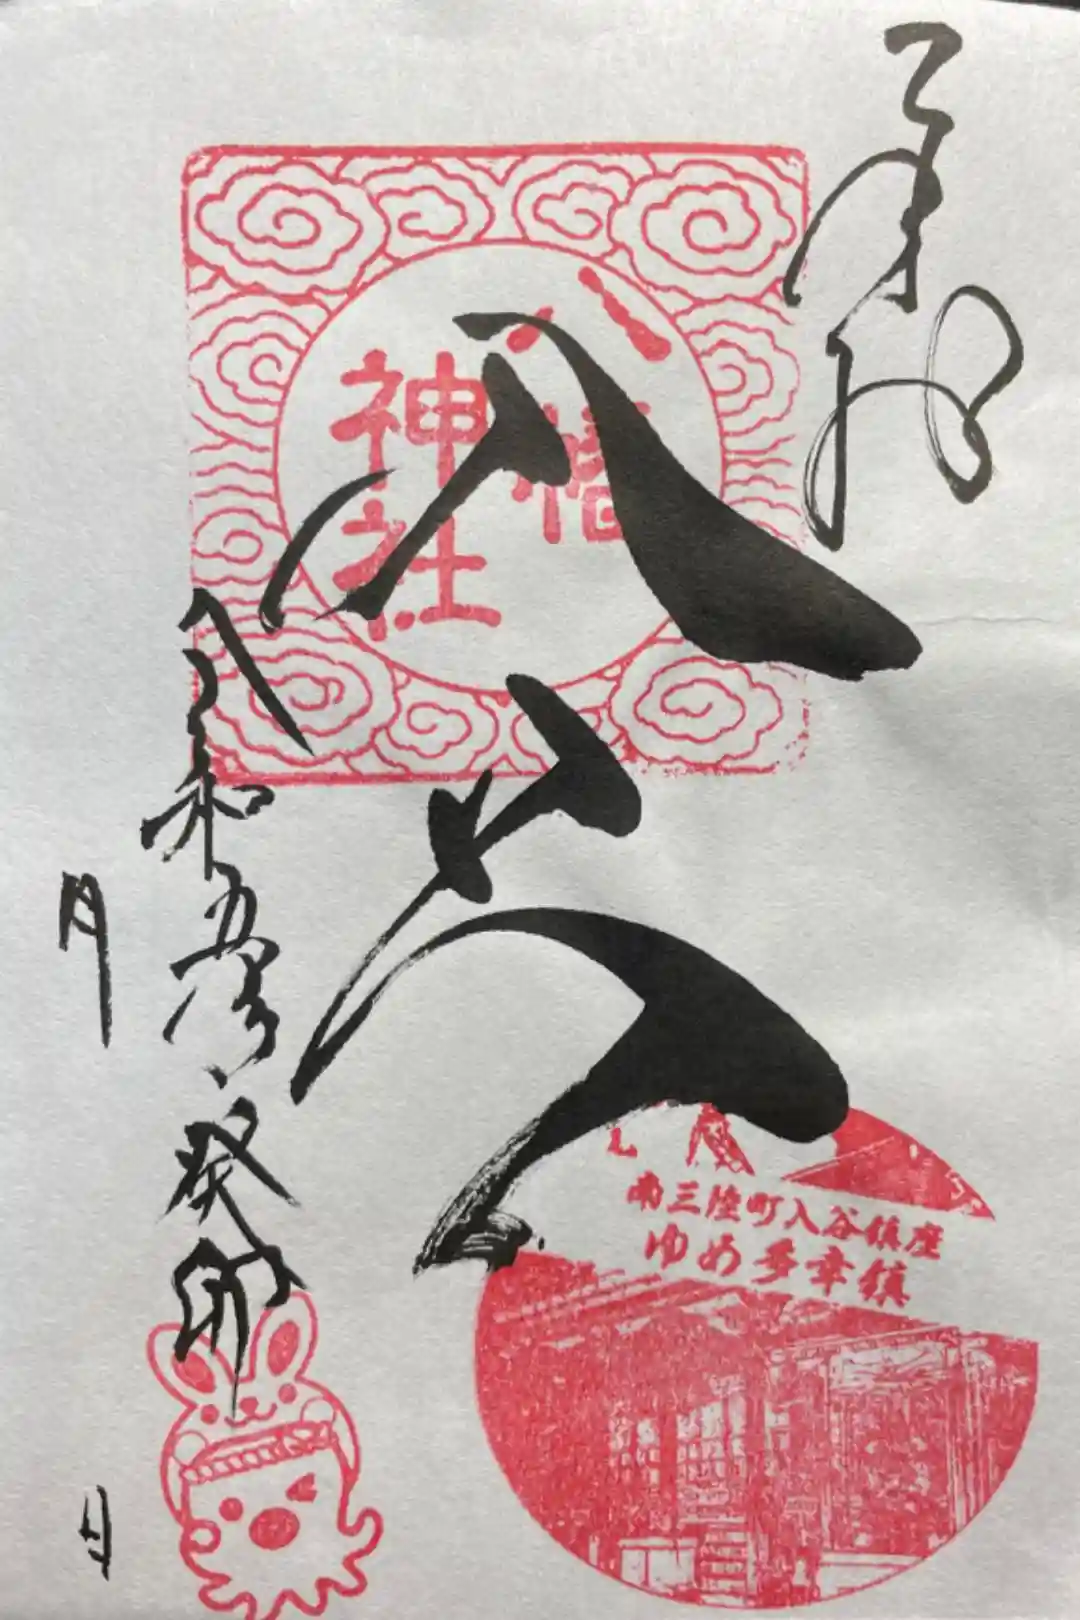 奉拝
八幡
神社
八幡宮
令和五年癸卯
月
日
南三陸町入谷鎮座
ゆめ多幸鎮